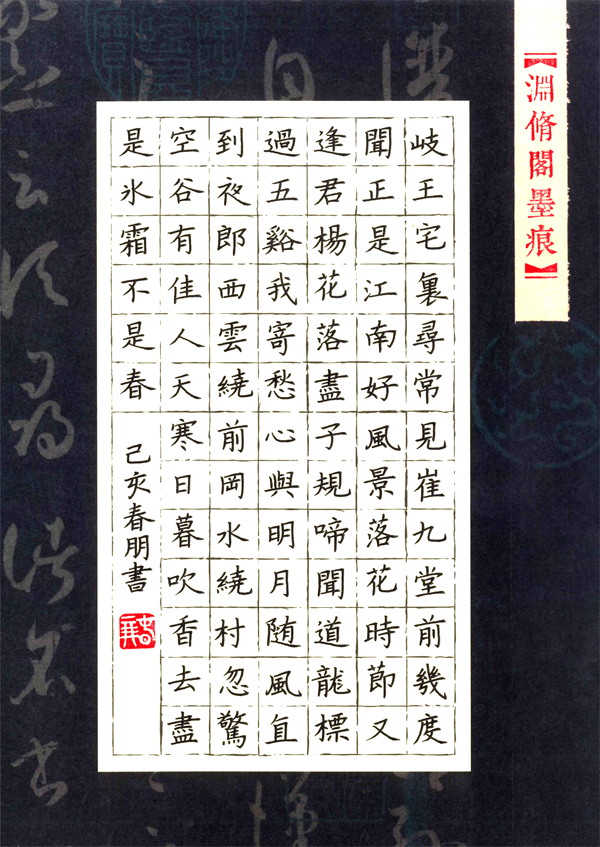 【淵脩閣墨痕】
岐王宅裏尋常見崔九堂前幾度
聞正是江南好風景落花時節又
逢君楊花落盡子規啼聞道龍標
過五谿我寄愁心與明月随風直
到夜郎西雲繞前岡水繞村忽驚
空谷有佳人天寒日暮吹香去盡
是氷霜不是春
己亥春朋書